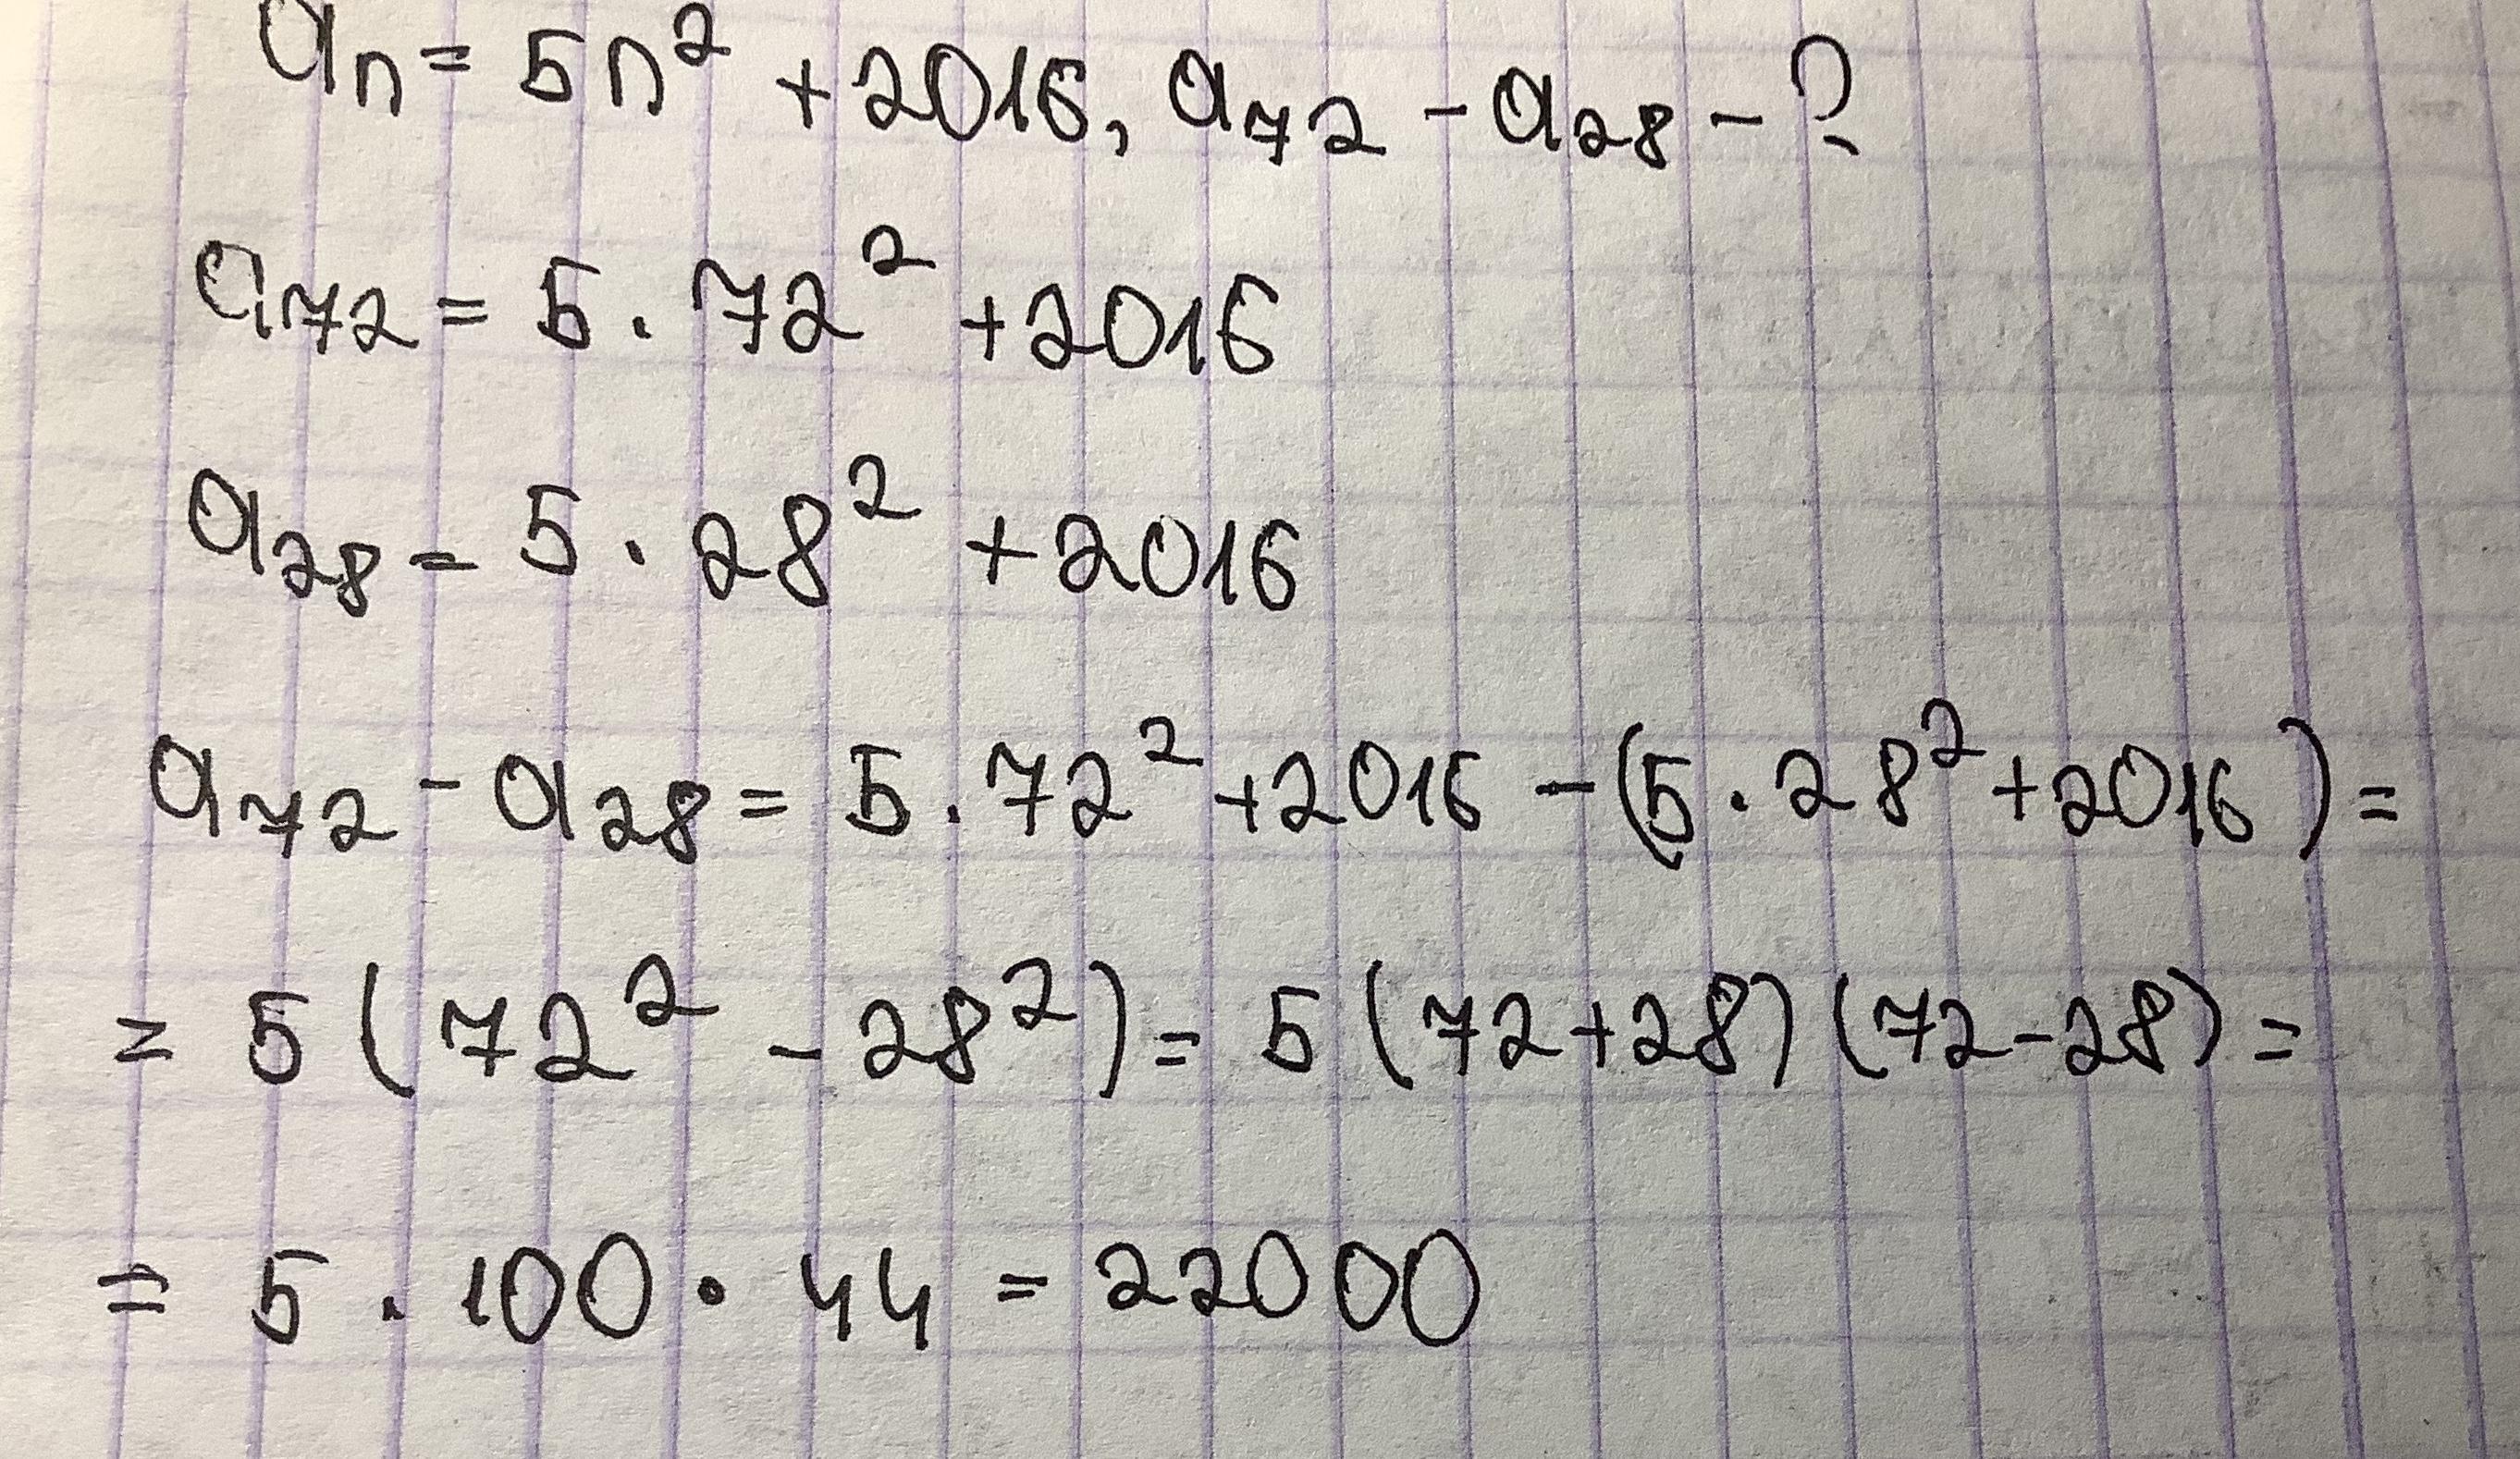 aₙ = 5n² + 2016, a₇₂ - a₂₈ - ?
a₇₂ = 5 · 72² + 2016
a₂₈ = 5 · 28² + 2016
a₇₂ - a₂₈ = 5 · 72² + 2016 - (5 · 28² + 2016) =
= 5 (72² - 28²) = 5 (72 + 28) (72 - 28) =
= 5 · 100 · 44 = 22000